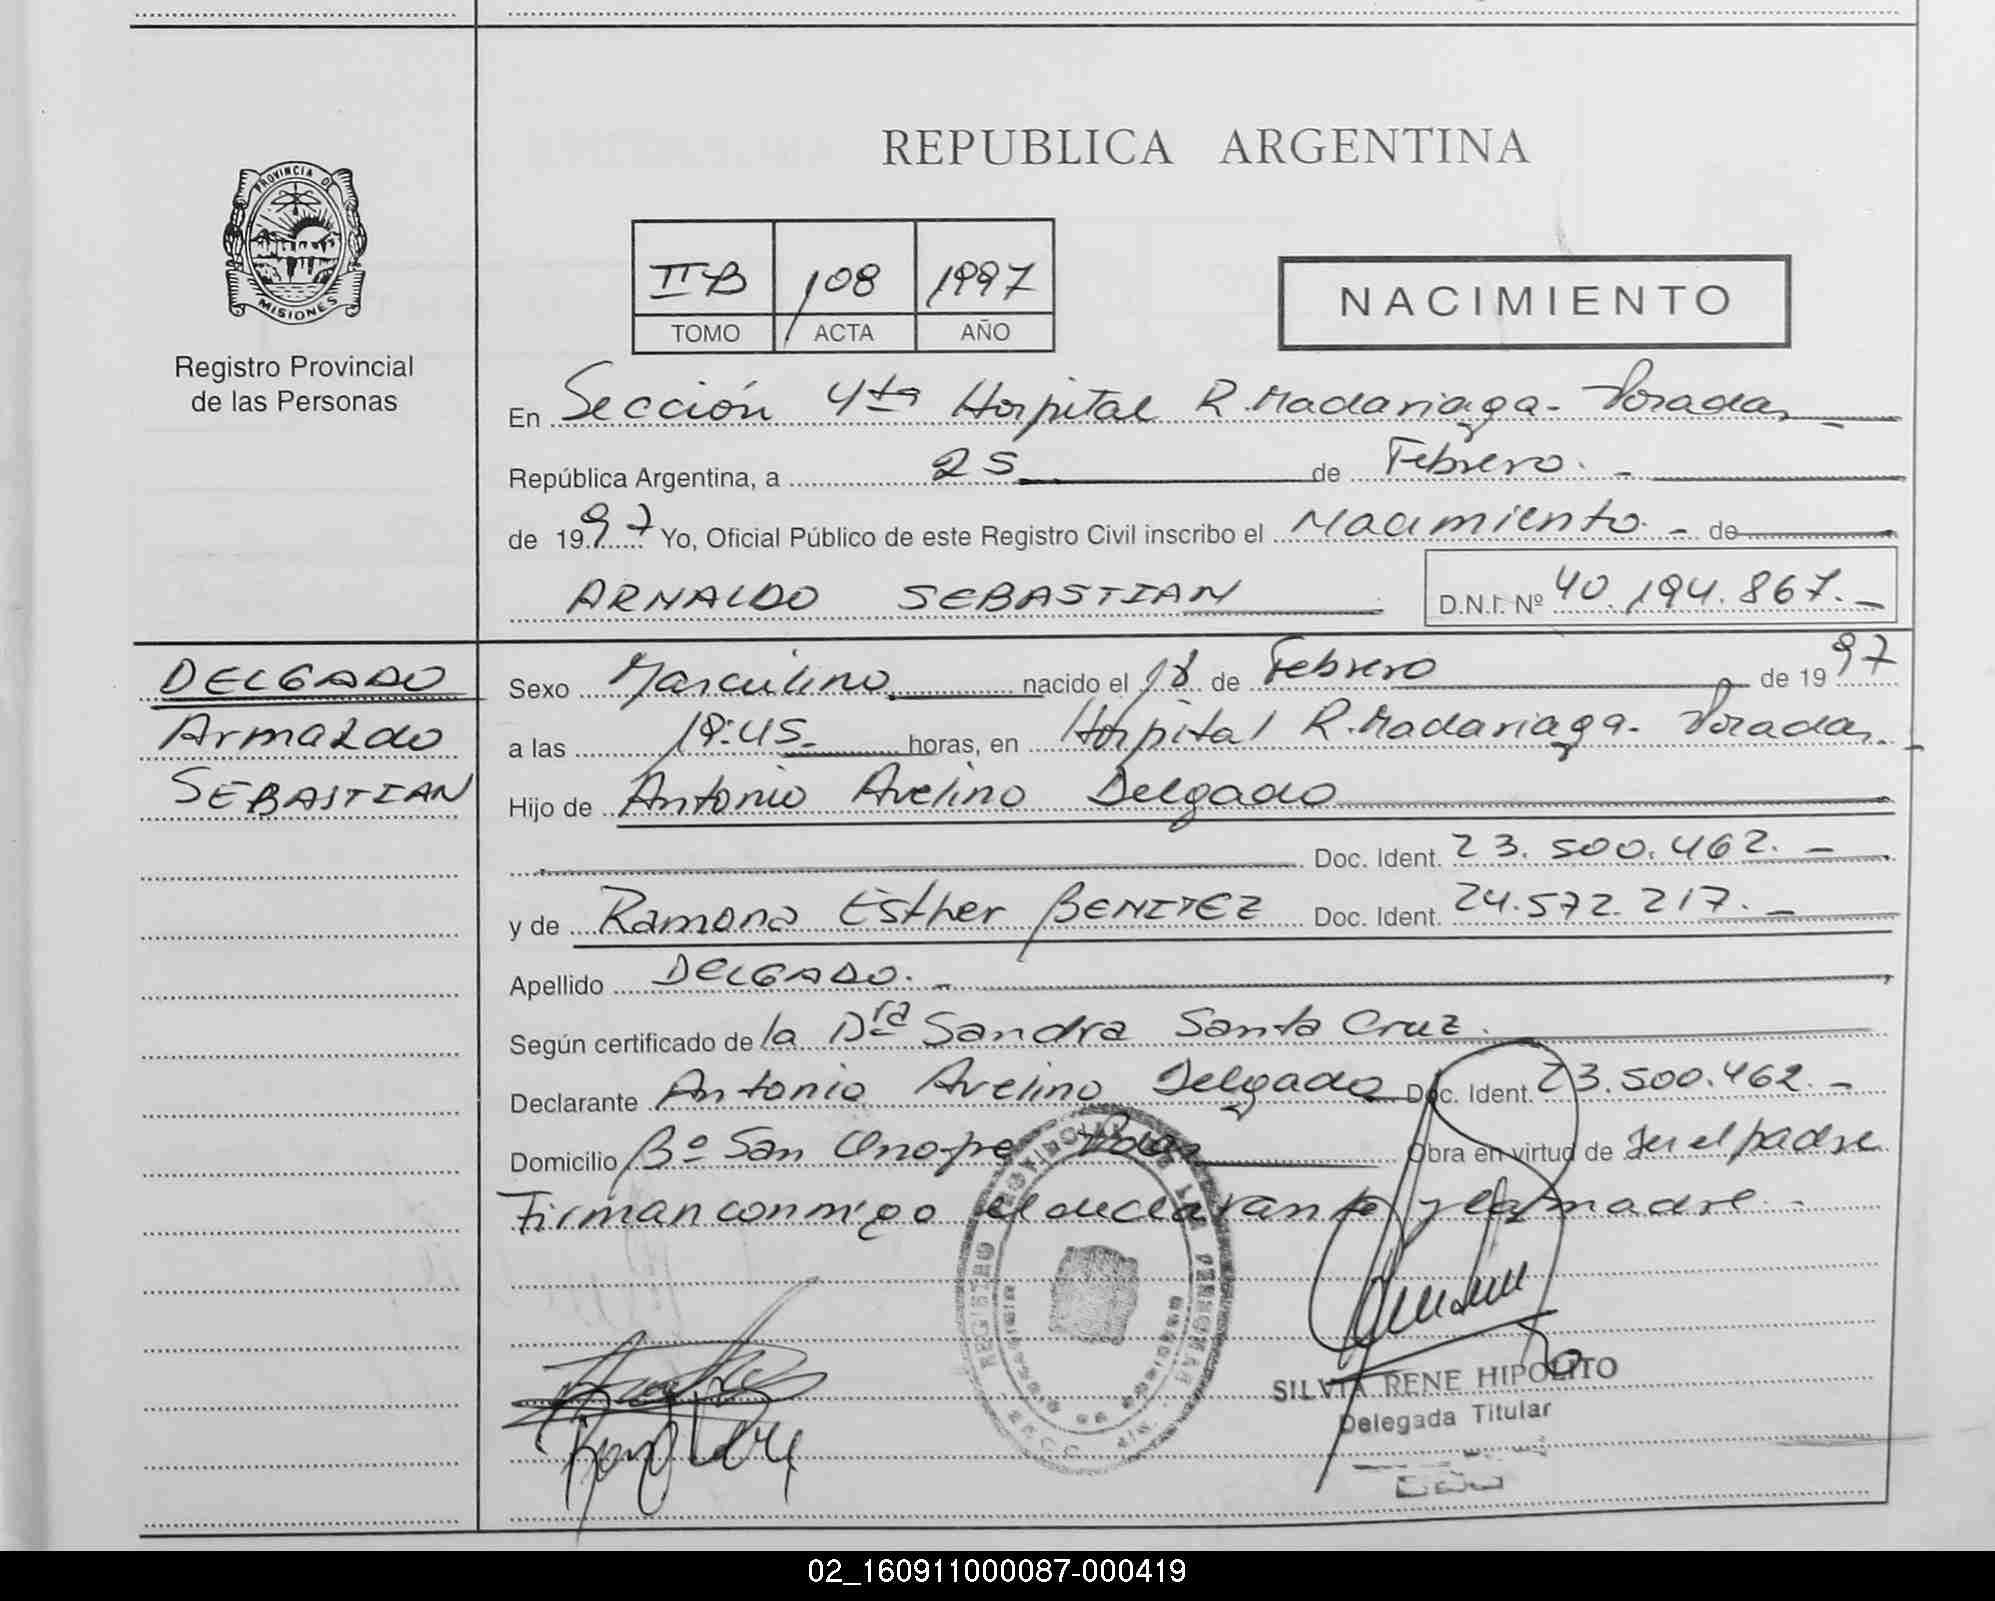 REPUBLICA ARGENTINA
PROVINCIA DE
MISIONES
Registro Provincial
de las Personas
II B 108 1997
TOMO ACTA AÑO
NACIMIENTO
En Sección 4ta Hospital R. Madariaga - Posadas
República Argentina, a 25 de Febrero. -
de 1997 Yo, Oficial Público de este Registro Civil inscribo el Nacimiento. - de
ARNALDO SEBASTIAN D.N.I. Nº 40.194.867. -
DELGADO
Arnaldo
SEBASTIAN
Sexo Masculino nacido el 18 de Febrero de 1997
a las 19:45 horas, en Hospital R. Madariaga - Posadas. -
Hijo de Antonio Avelino Delgado
Doc. Ident. 23.500.462. -
y de Ramona Esther BENITEZ Doc. Ident. 24.572.217. -
Apellido DELGADO. -
Según certificado de la Dra Sandra Santa Cruz.
Declarante Antonio Avelino Delgado Doc. Ident. 23.500.462. -
Domicilio Bº San Onofre Pdas Obra en virtud de Ser el padre
Firman conmigo el declarante y la madre. -
SILVIA RENE HIPOLITO
Delegada Titular
02_160911000087-000419